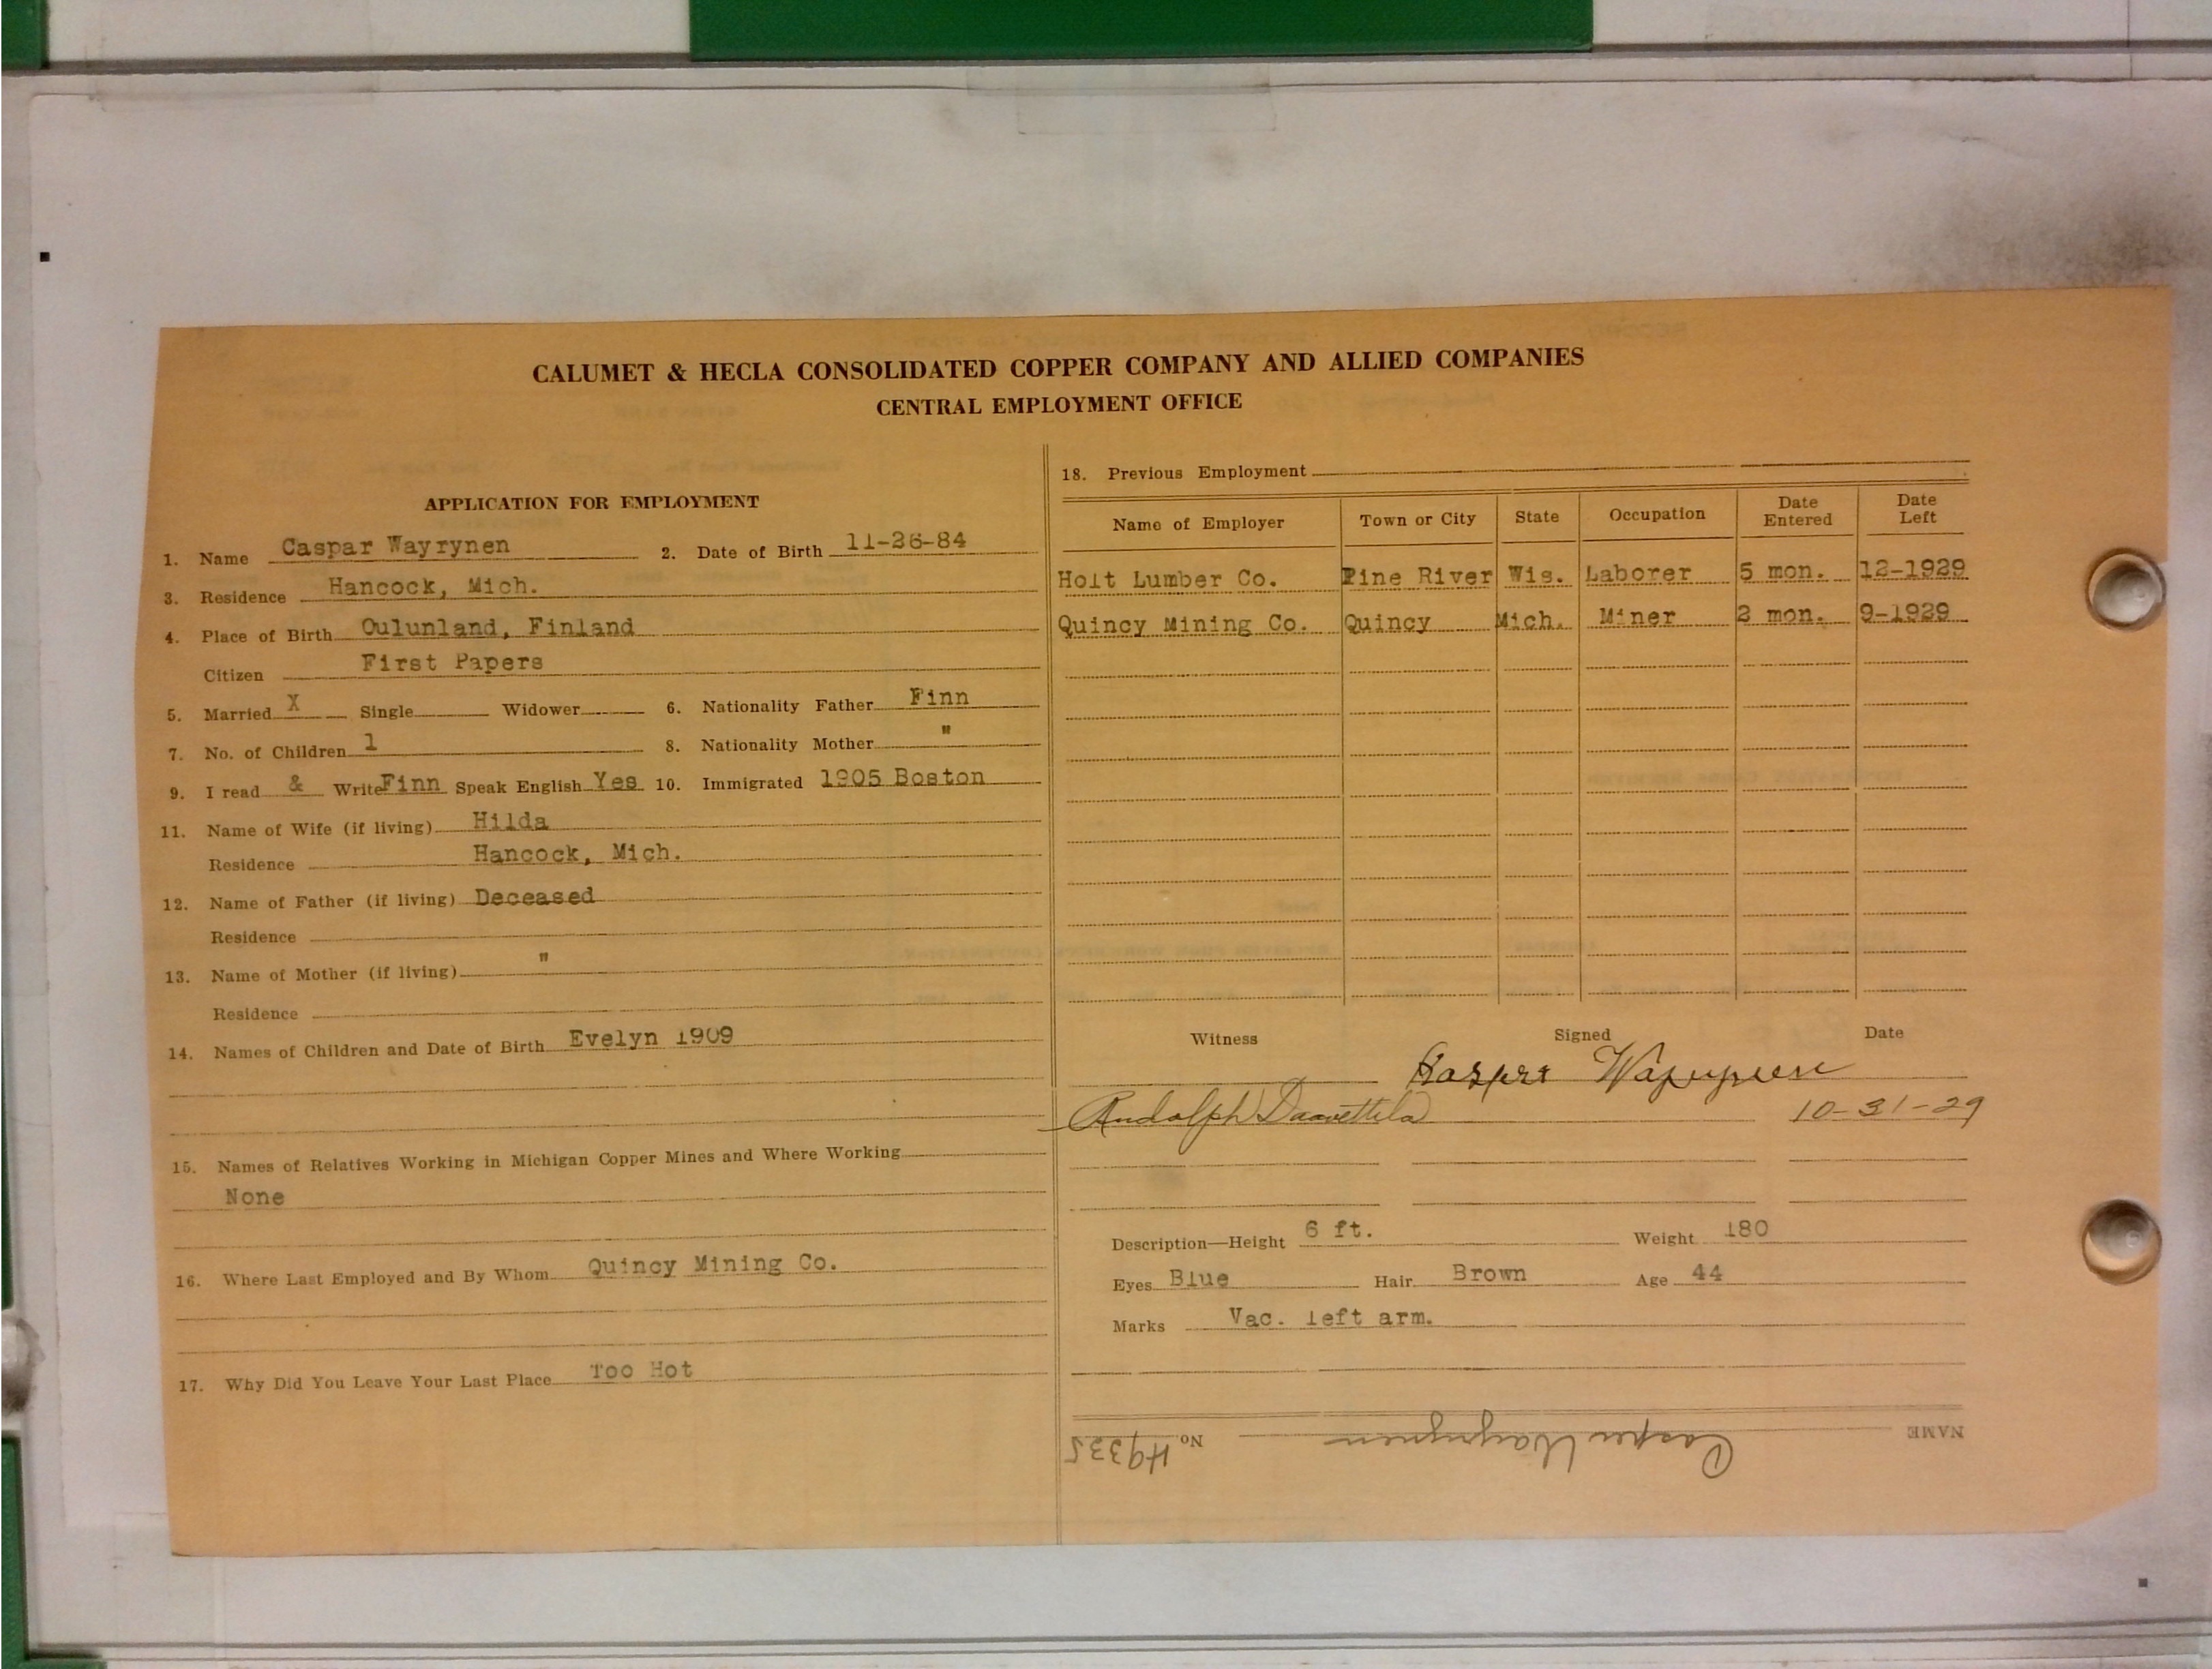 CALUMET & HECLA CONSOLIDATED COPPER COMPANY AND ALLIED COMPANIES
CENTRAL EMPLOYMENT OFFICE
APPLICATION FOR EMPLOYMENT
1. Name Caspar Wayrynen 2. Date of Birth 11-26-84
3. Residence Hancock, Mich.
4. Place of Birth Oulunland, Finland
Citizen First Papers
5. Married X Single Widower 6. Nationality Father Finn
7. No. of Children 1 8. Nationality Mother "
9. I read & Write Finn Speak English Yes 10. Immigrated 1905 Boston
11. Name of Wife (if living) Hilda
Residence Hancock, Mich.
12. Name of Father (if living) Deceased
Residence
13. Name of Mother (if living) "
Residence
14. Names of Children and Date of Birth Evelyn 1909
15. Names of Relatives Working in Michigan Copper Mines and Where Working
None
16. Where Last Employed and By Whom Quincy Mining Co.
17. Why Did You Leave Your Last Place Too Hot
18. Previous Employment
Name of Employer Town or City State Occupation Date Entered Date Left
Holt Lumber Co. Pine River Wis. Laborer 5 mon. 12-1929
Quincy Mining Co. Quincy Mich. Miner 2 mon. 9-1929
Witness Signed Date
Kasper Wayrynen
Rudolph Daavettila 10-31-29
Description—Height 6 ft. Weight 180
Eyes Blue Hair Brown Age 44
Marks Vac. left arm.
NAME Casper Wayrynen No. H9335